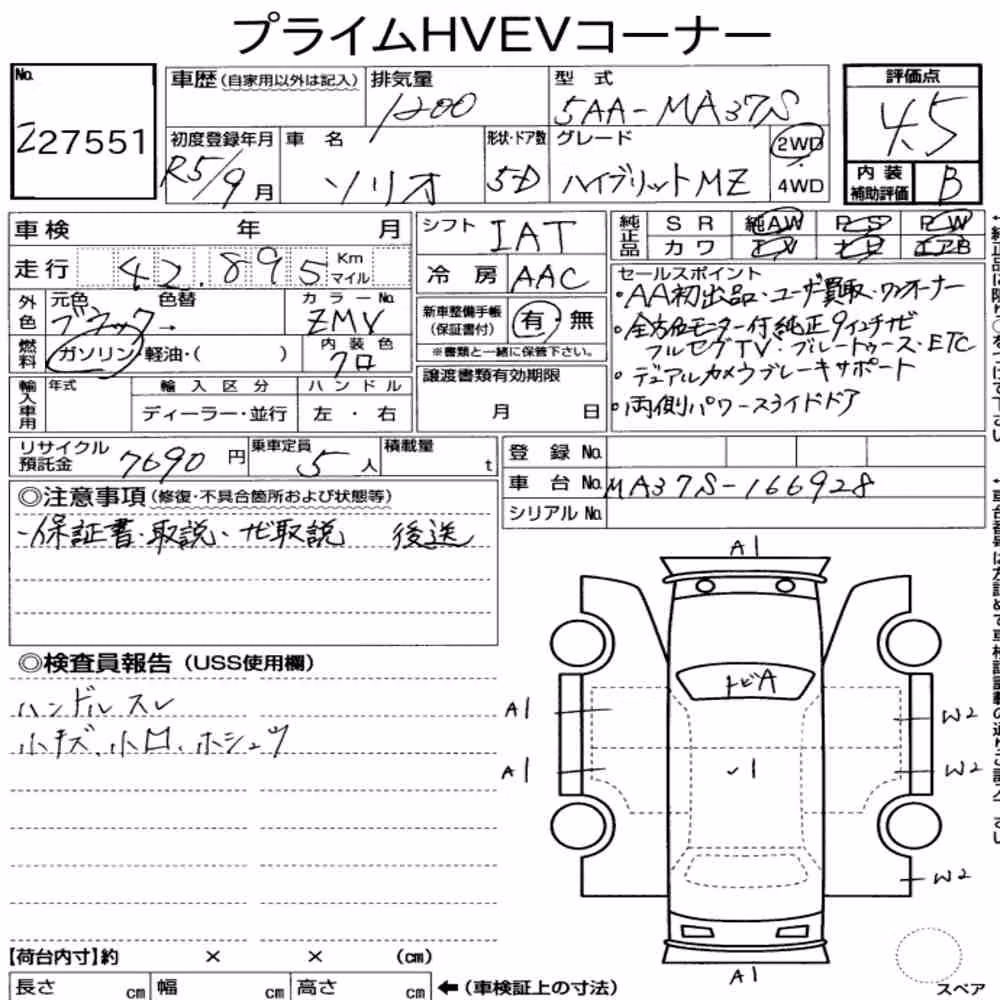 プライムHVEVコーナー
No.
227551
車歴(自家用以外は記入)
排気量
1200
型式
5AA-MA37S
評価点
4.5
初度登録年月
R5/9月
車名
ソリオ
形状・ドア数
5D
グレード
ハイブリットMZ
2WD
4WD
内装
補助評価
B
車検 年 月
シフト
IAT
純正品
SR 純AW PS PW
カワ TV ナビ エアB
走行
42,895
Km
マイル
冷房
AAC
セールスポイント
・AA初出品・ユーザ買取・ワンオーナー
・全方位モニター付純正9インチナビ
フルセグTV・ブルートゥース・ETC
・デュアルカメラブレーキサポート
・両側パワースライドドア
外色
元色
ブラック→
色替
カラーNo.
ZMV
新車整備手帳
(保証書付)
有・無
※書類と一緒に保管下さい。
燃料
ガソリン・軽油・( )
内装色
クロ
譲渡書類有効期限
月 日
輸入車用
年式
輸入区分
ディーラー・並行
ハンドル
左・右
リサイクル
預託金
7690円
乗車定員
5人
積載量
t
登録No.
車台No. MA37S-166928
シリアルNo.
◎注意事項(修復・不具合箇所および状態等)
・保証書・取説・ナビ取説 後送
◎検査員報告(USS使用欄)
ハンドルスレ
小キズ、小凹、ホシュウ
A1
トビA
A1
W2
A1
✓1
W2
W2
A1
【荷台内寸】約 × × (cm)
長さ cm 幅 cm 高さ cm
←(車検証上の寸法)
スペア